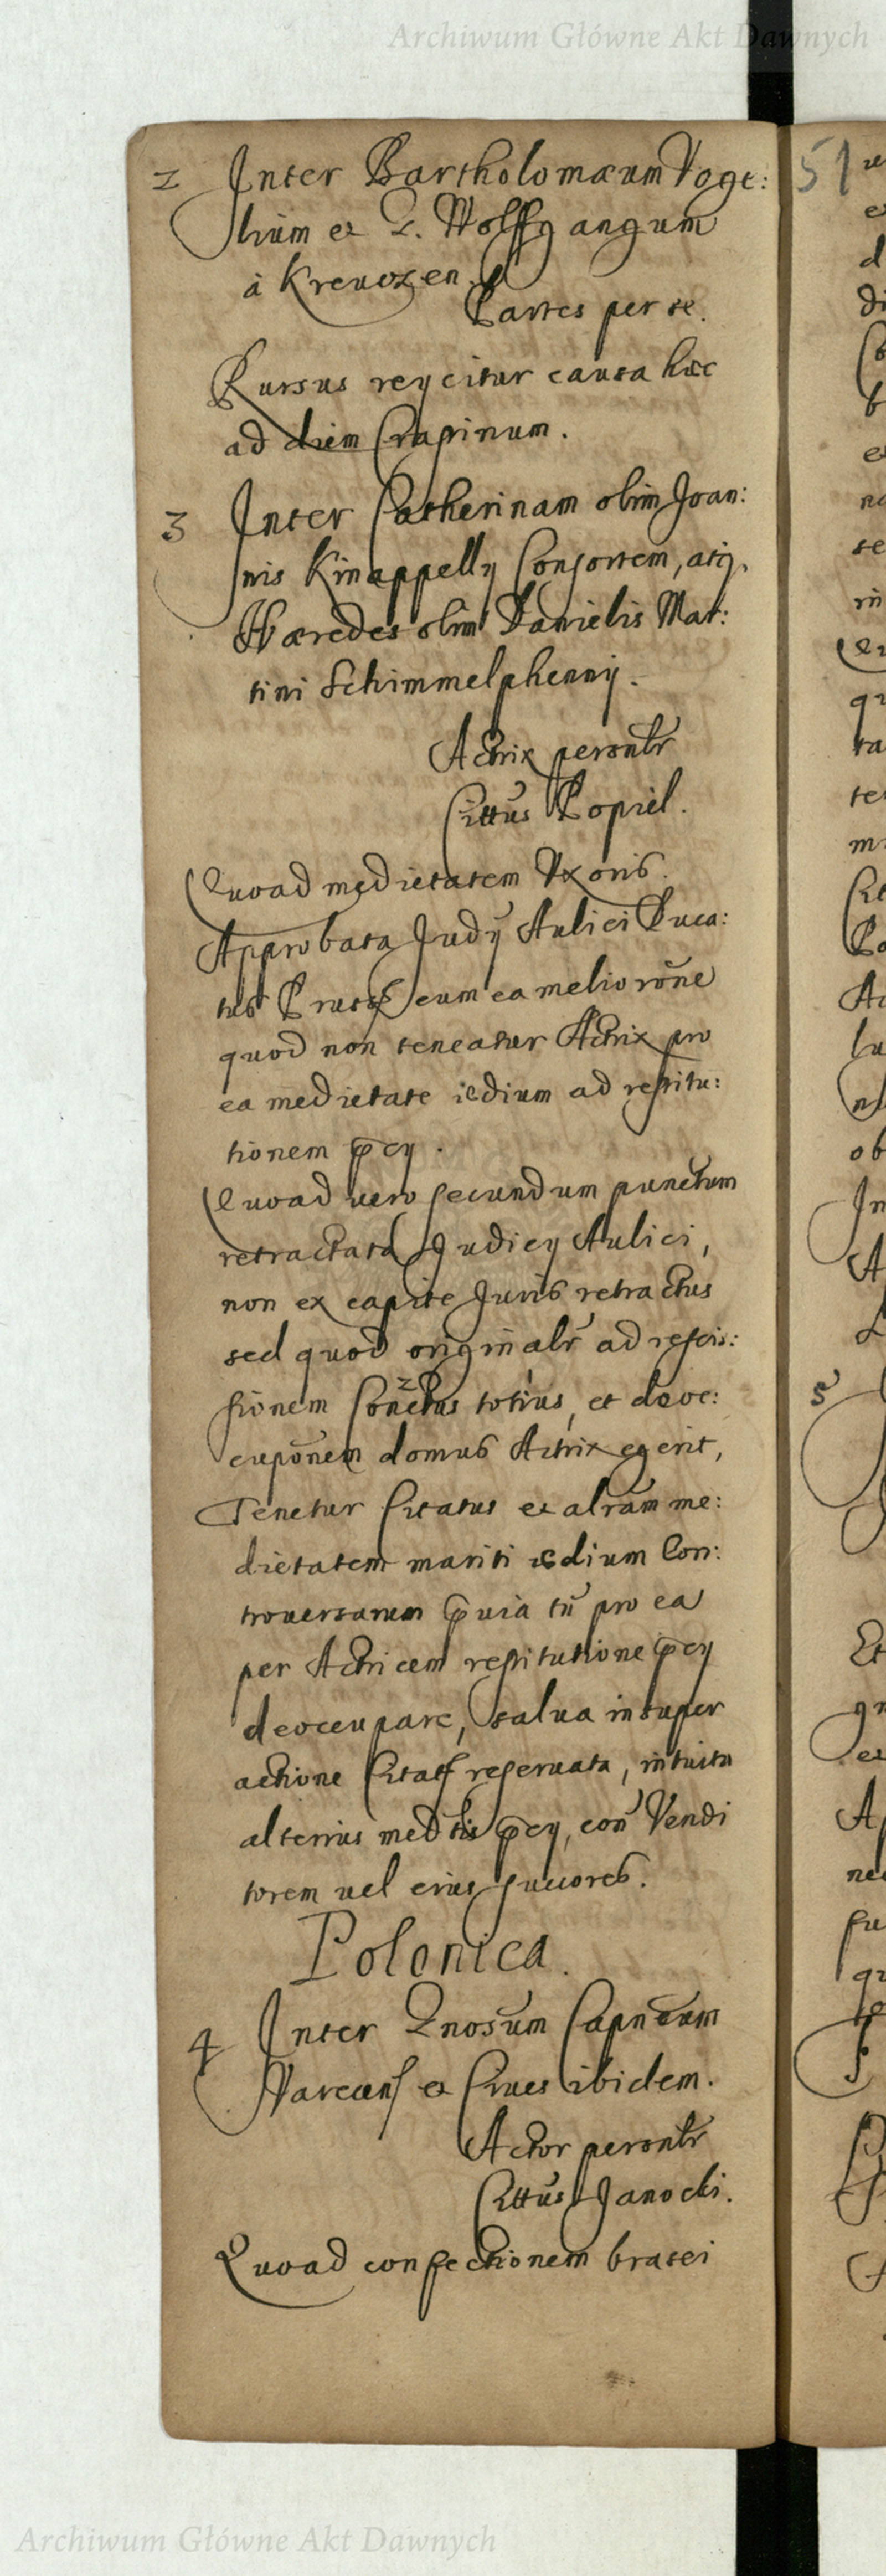 Archiwum Główne Akt Dawnych
2 Inter Bartholomæum Voge:
lium et G. Wolffgangum
à Kreuozen.
Partes per se.
Rursus reycitur causa hæc
ad diem Crastinum.
3 Inter Catherinam olim Joan:
nis Kinappelly Consortem, atq.
Hæredes olim Danielis Mar:
tini Schimmelphennij.
Actrix per
Cittus Popiel.
Quoad medietatem Vxoris.
Approbata Judy Aulici Duca:
tus Prussi cum ea melioröne
quod non teneatur Actrix pro
ea medietate ædium ad restitu:
tionem pcy.
Quoad vero secundum punctum
retractata Judicy Aulici,
non ex capite Juris retractus
sed quod originalr ad rescis:
sionem Conctus totius, et deoc:
cuponem domus Actrix egerit,
Tenetur Citatus et alram me:
dietatem mariti ædium Con:
trouersarum pvia tn pro ea
per Actricem restitutione pcy
deoccupare, salua insuper
actione Citat reseruata, intuitu
alterius medtis pcy, con Vendi
torem uel eius succores.
Polonica.
4 Inter Gnosum Capneum
Varcens et Ciues ibidem.
Actor per
Cittus Janocki.
Quoad confectionem brasei
51
5
Archiwum Główne Akt Dawnych